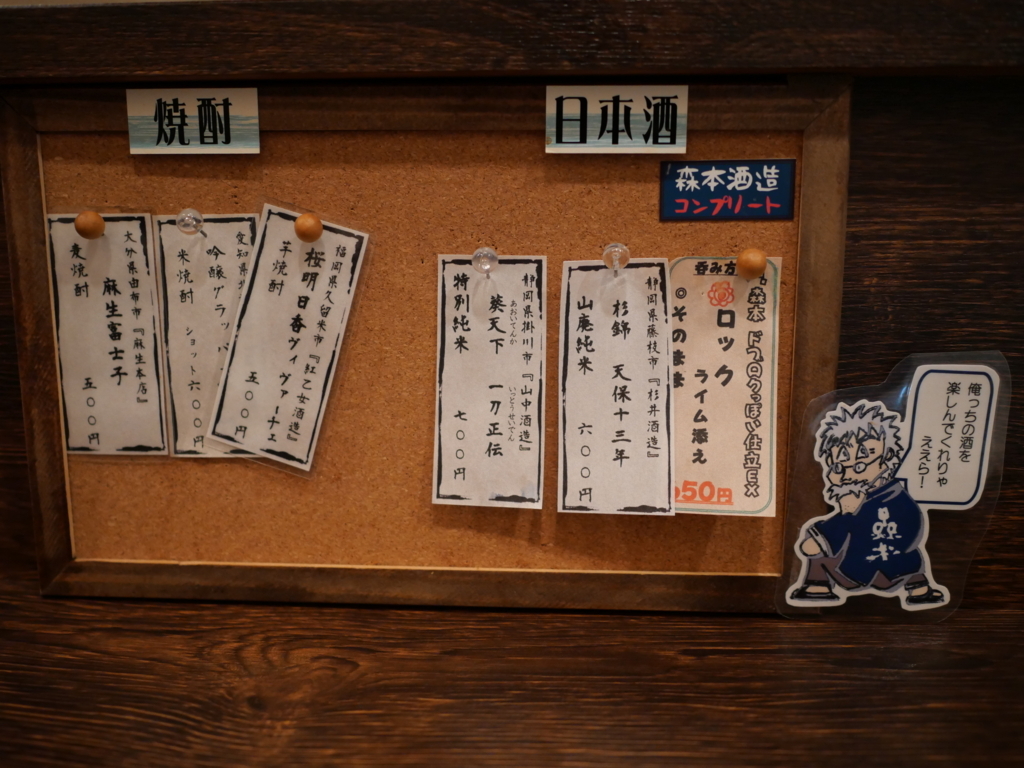 焼酎
日本酒
森本酒造
コンプリート
福岡県久留米市『紅乙女酒造』
桜明日香ヴィヴァーチェ
芋焼酎
五〇〇円
愛知県
吟醸グラッパ
米焼酎
ショット六〇
大分県由布市『麻生本店』
麻生富士子
麦焼酎
五〇〇円
森本 ドブロクっぽい仕立EX
呑み方
ロック
ライム添え
◎そのまま
50円
静岡県藤枝市『杉井酒造』
杉錦 天保十三年
山廃純米
六〇〇円
静岡県掛川市『山中酒造』
葵天下 一刀正伝
あおいてんか いっとうせいでん
特別純米
七〇〇円
俺っちの酒を
楽しんでくれりゃ
ええら!